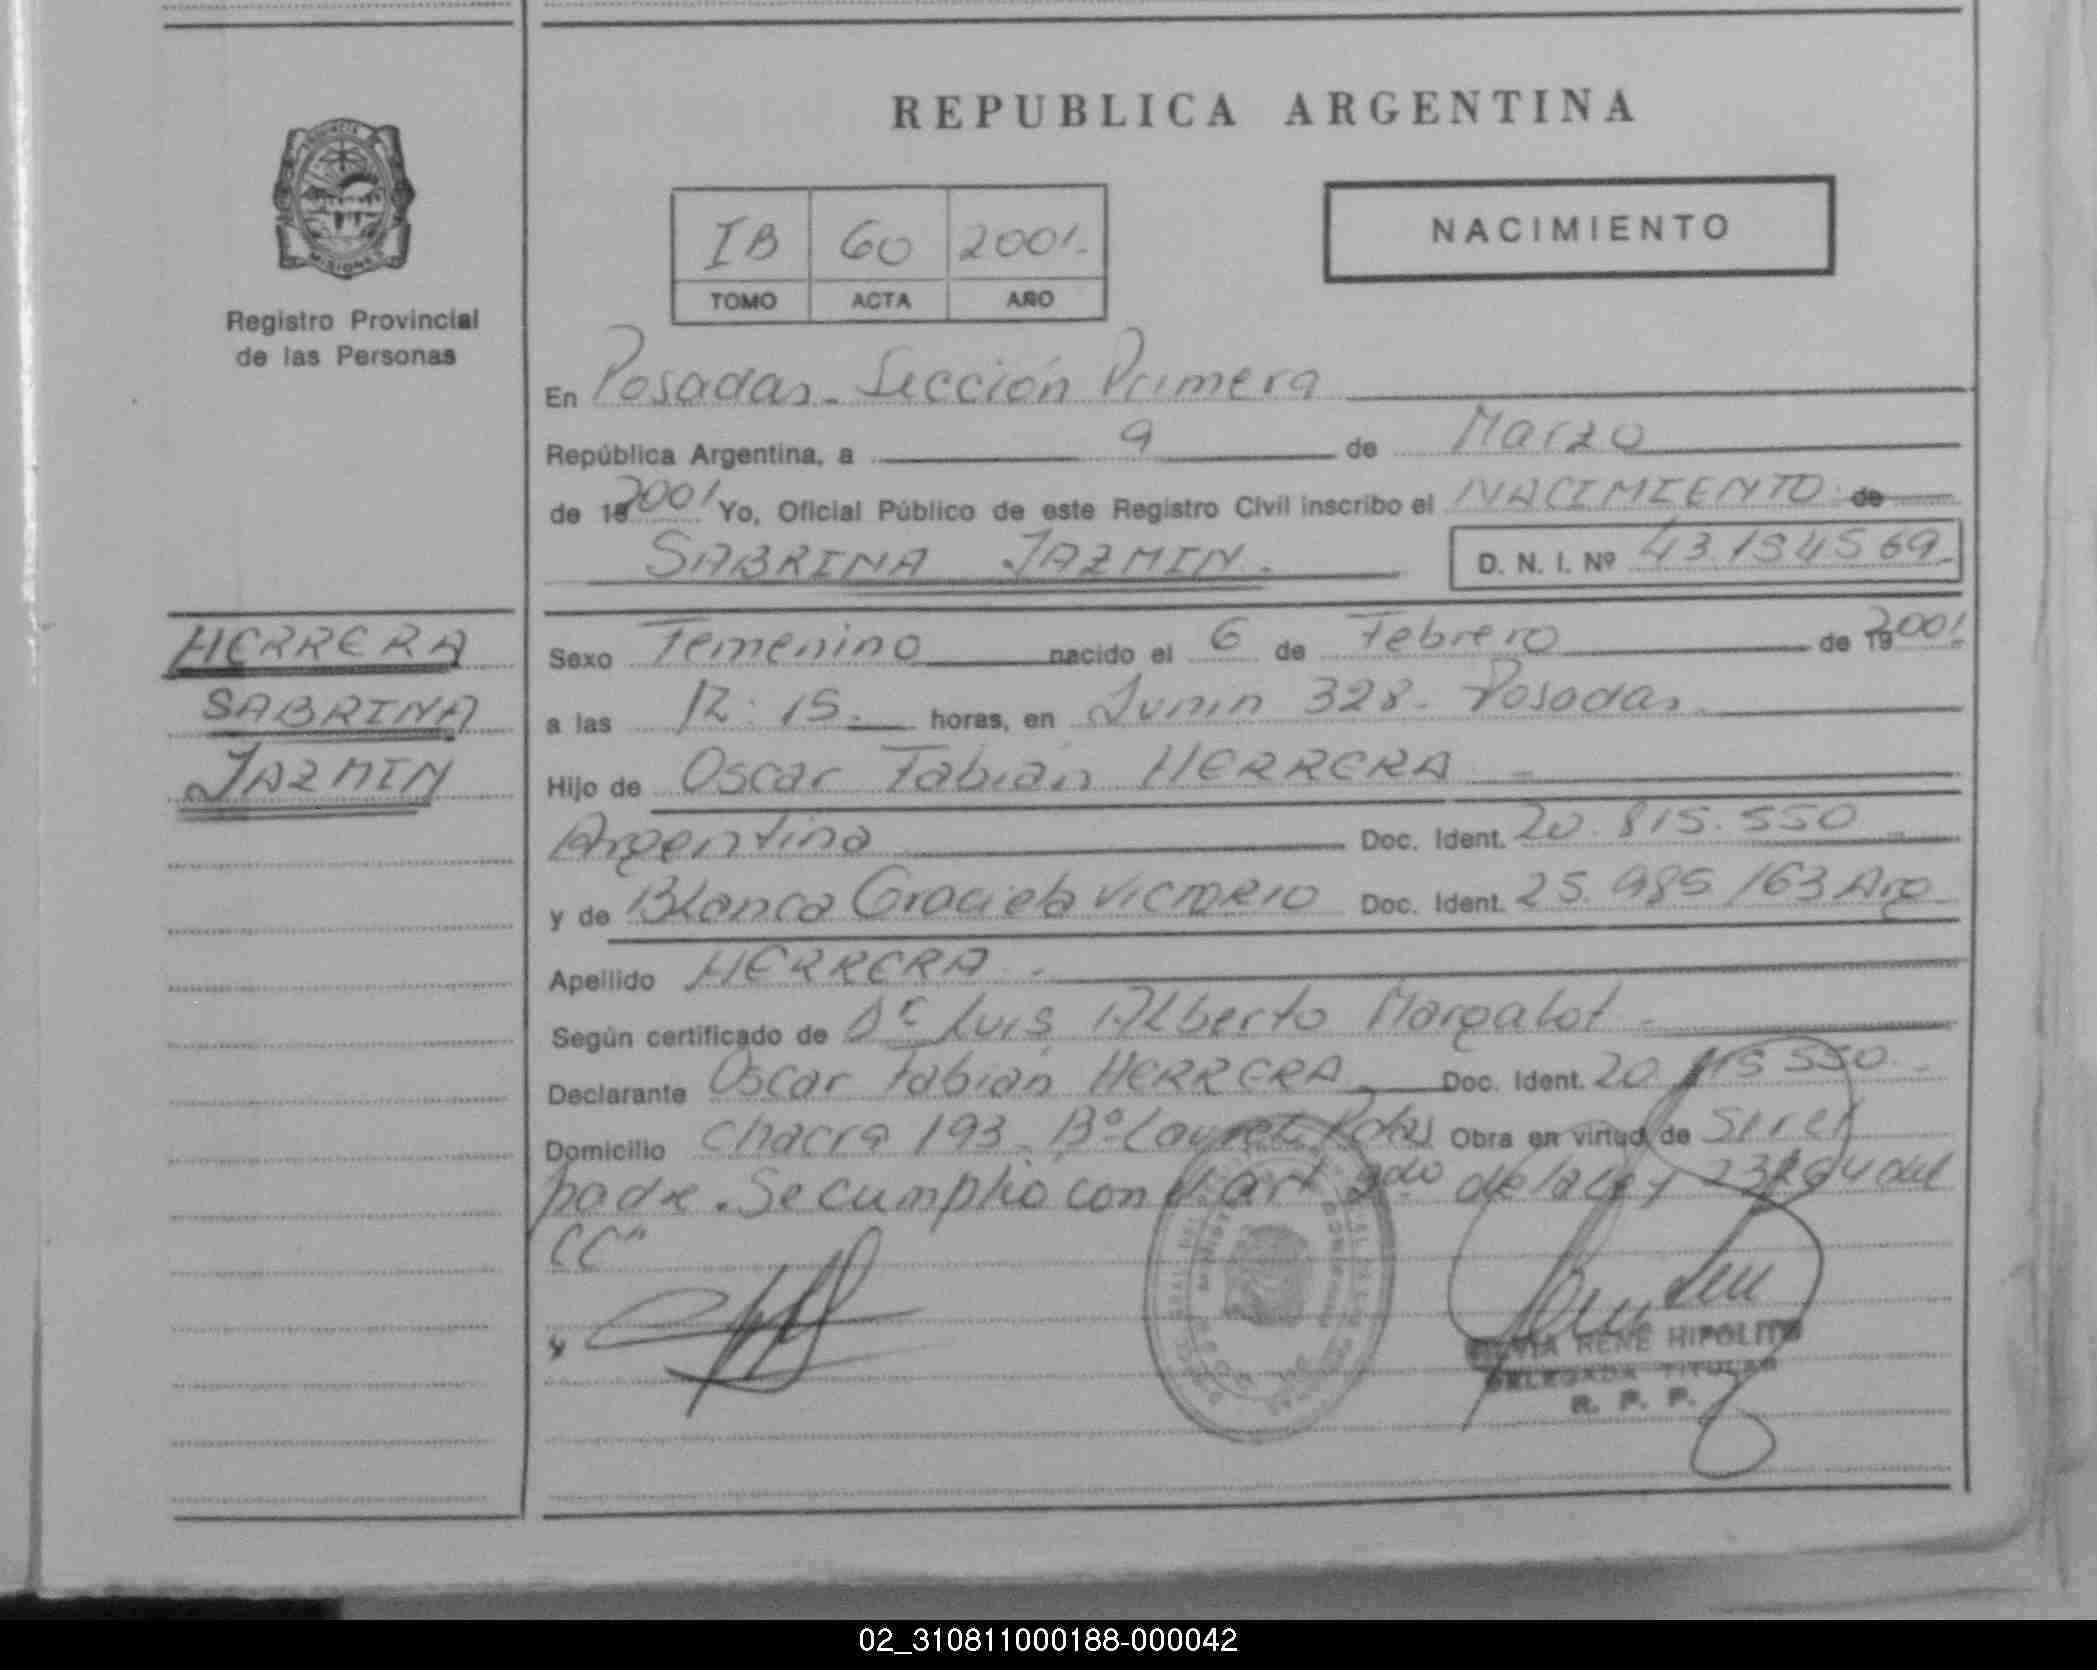 REPUBLICA ARGENTINA
PROVINCIA
MISIONES
Registro Provincial
de las Personas
IB 60 2001.-
TOMO ACTA AÑO
NACIMIENTO
En Posadas. Sección Primera
República Argentina, a 9 de Marzo
de 19 2001 Yo, Oficial Público de este Registro Civil inscribo el NACIMIENTO de
SABRINA JAZMIN. D. N. I. Nº 43.154569.
HERRERA
SABRINA
JAZMIN
Sexo Femenino nacido el 6 de Febrero de 19 2001.
a las 12:15. horas, en Junin 328. Posadas.
Hijo de Oscar Fabián HERRERA
Argentino Doc. Ident. 20.815.550
y de Blanca Graciela VICTORIO Doc. Ident. 25.985163 Arg
Apellido HERRERA.
Según certificado de Dr Luis Alberto Margalot
Declarante Oscar Fabián HERRERA Doc. Ident. 20.815550
Domicilio Chacra 193. Bº Pdas Obra en virtud de ser el
padre. Se cumplio con el art 2do de la ley del
CC"
RENE HIPOLITO
DELEGADA TITULAR
R. P. P.
02_310811000188-000042